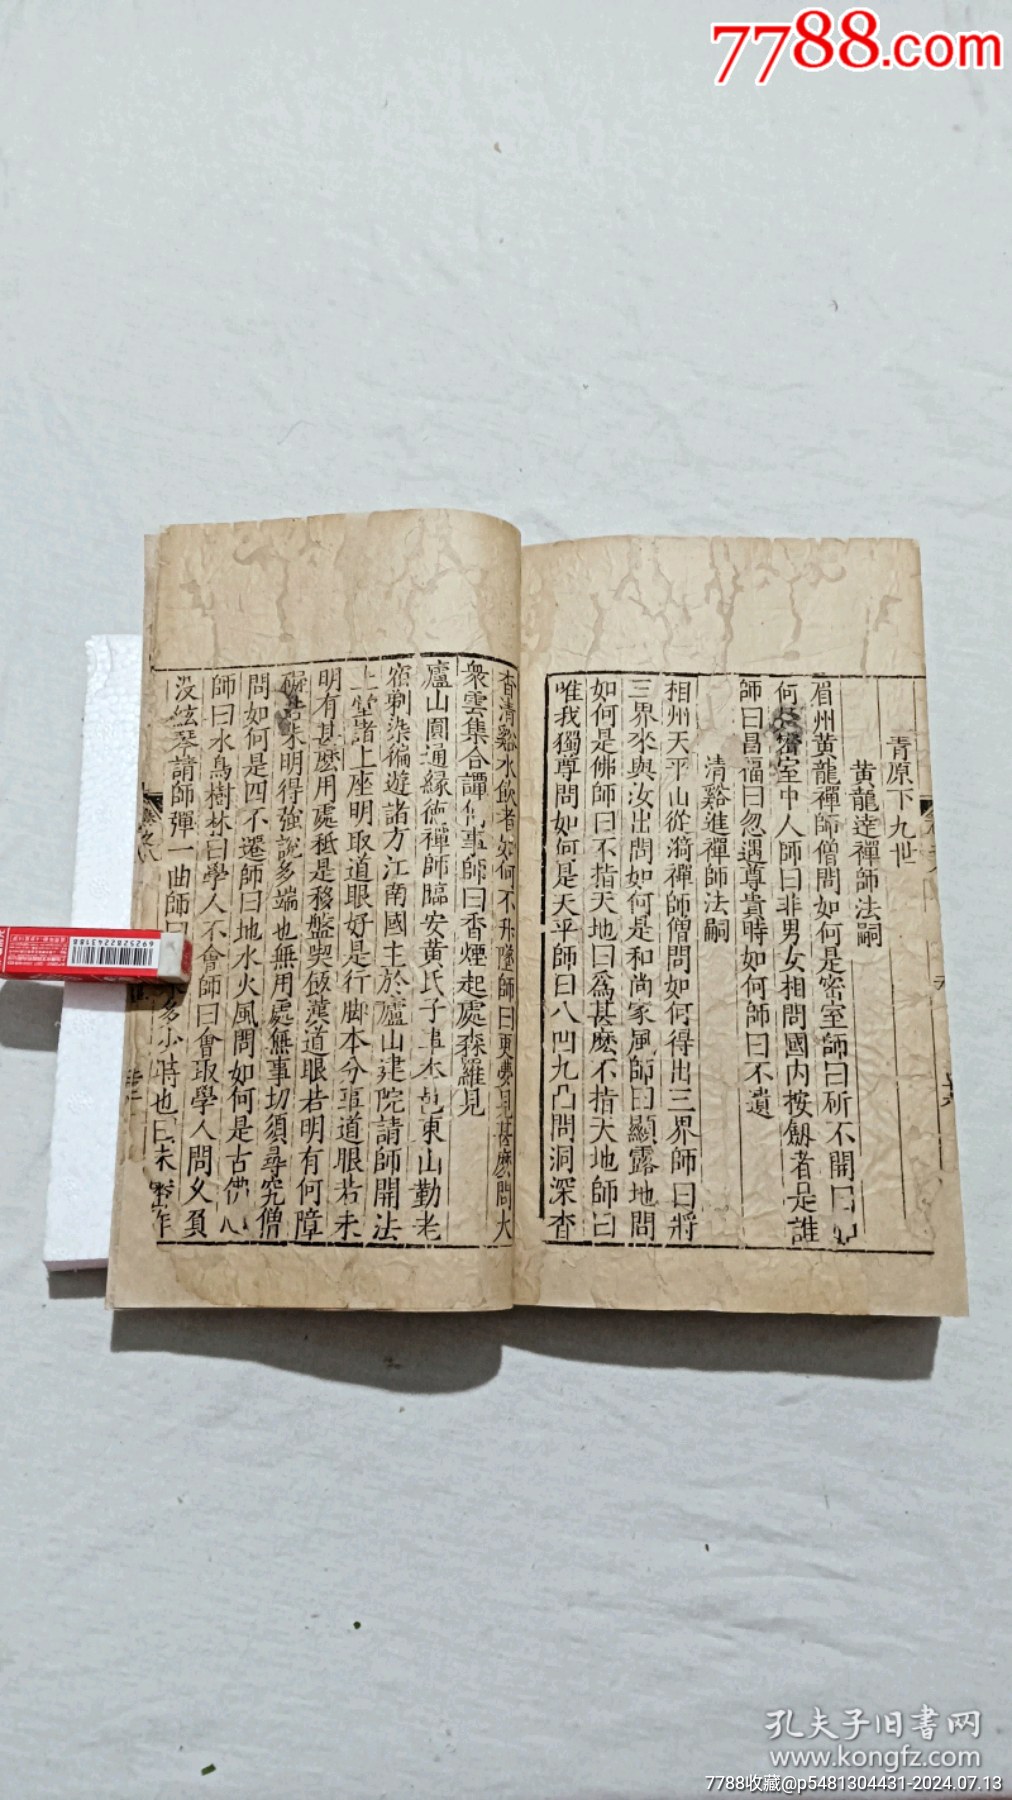 7788.com
青原下九世
黄龍達禪師法嗣
眉州黄龍禪師僧問如何是密室師曰斫不開曰如
何是密室中人師曰非男女相問國内按劔者是誰
師曰昌福曰忽遇尊貴時如何師曰不遺
清谿進禪師法嗣
相州天平山從漪禪師僧問如何得出三界師曰將
三界來與汝出問如何是和尚家風師曰顯露地問
如何是佛師曰不指天地曰爲甚麽不指天地師曰
唯我獨尊問如何是天平師曰八凹九凸問洞深杳
杳清谿水飲者如何不升墜師曰更夢見甚麽問大
衆雲集合譚何事師曰香煙起處森羅見
廬山圓通緣德禪師臨安黄氏子事本邑東山勤老
宿剃染徧遊諸方江南國主於廬山建院請師開法
上堂諸上座明取道眼好是行脚本分事道眼若未
明有甚麽用處秖是移盤喫飯漢道眼若明有何障
礙若未明得強說多端也無用處無事切須尋究僧
問如何是四不遷師曰地水火風問如何是古佛心
師曰水鳥樹林曰學人不會師曰會取學人問久負
没絃琴請師彈一曲師曰 多少時也曰未審作
6925282263188
孔夫子旧書网
www.kongfz.com
7788收藏@p5481304431-2024.07.13